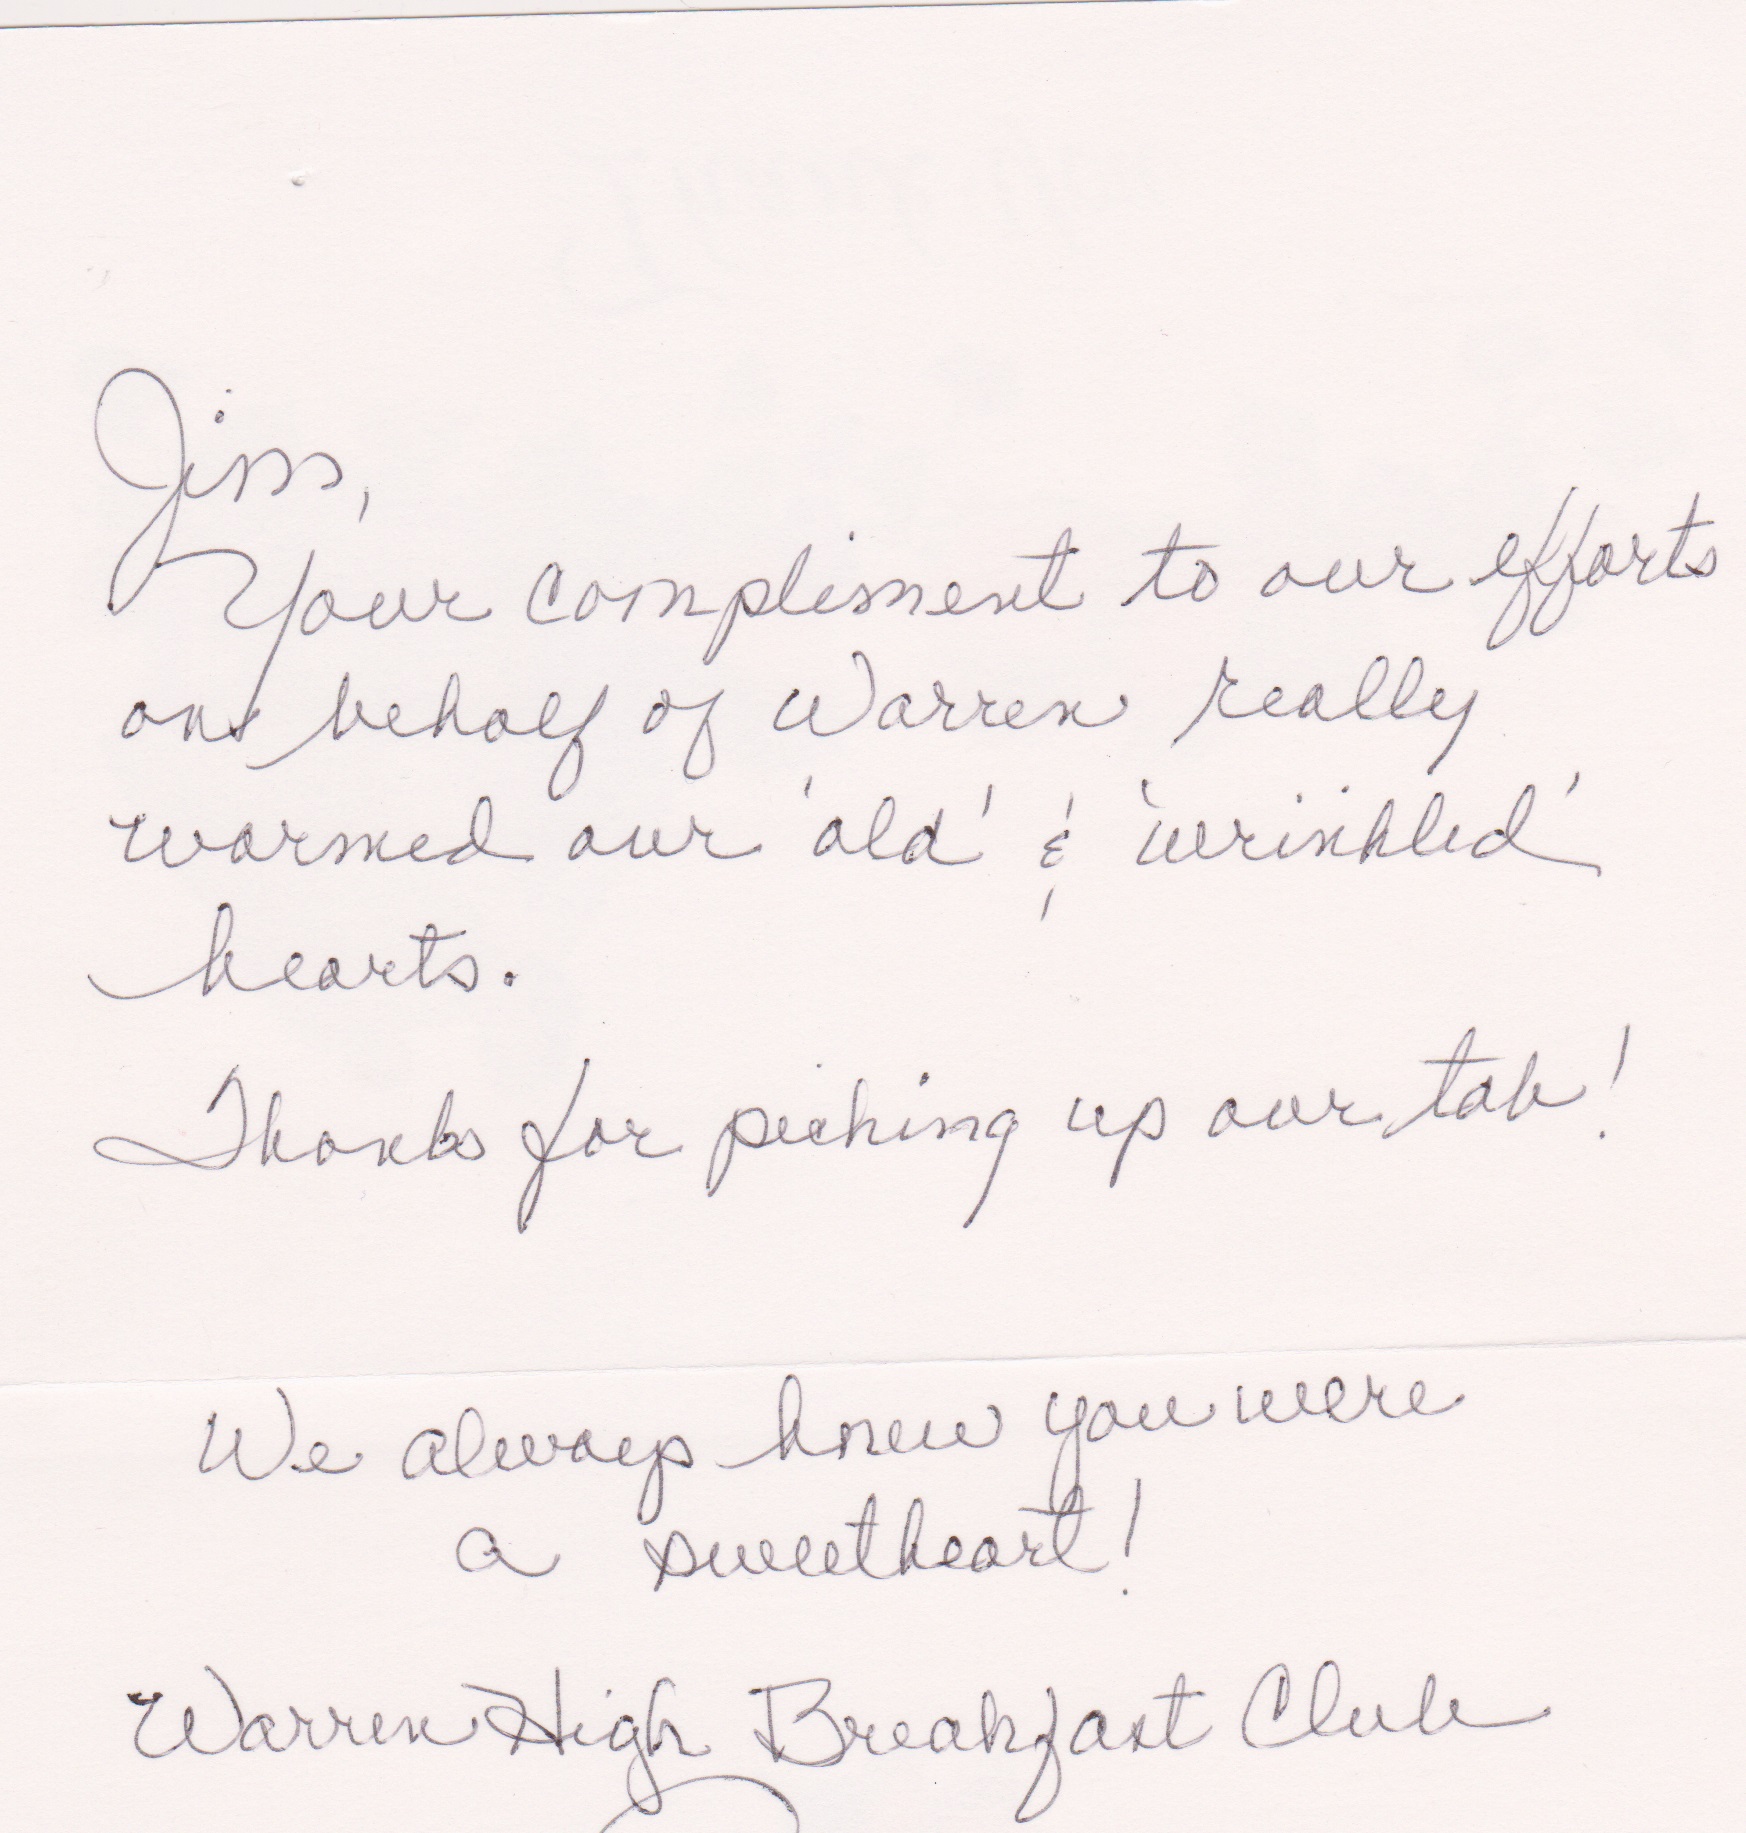 Jim,
Your compliment to our efforts
on behalf of Warren really
warmed our 'old' & 'wrinkled'
hearts.
Thanks for picking up our tab!
We always knew you were
a sweetheart!
Warren High Breakfast Club